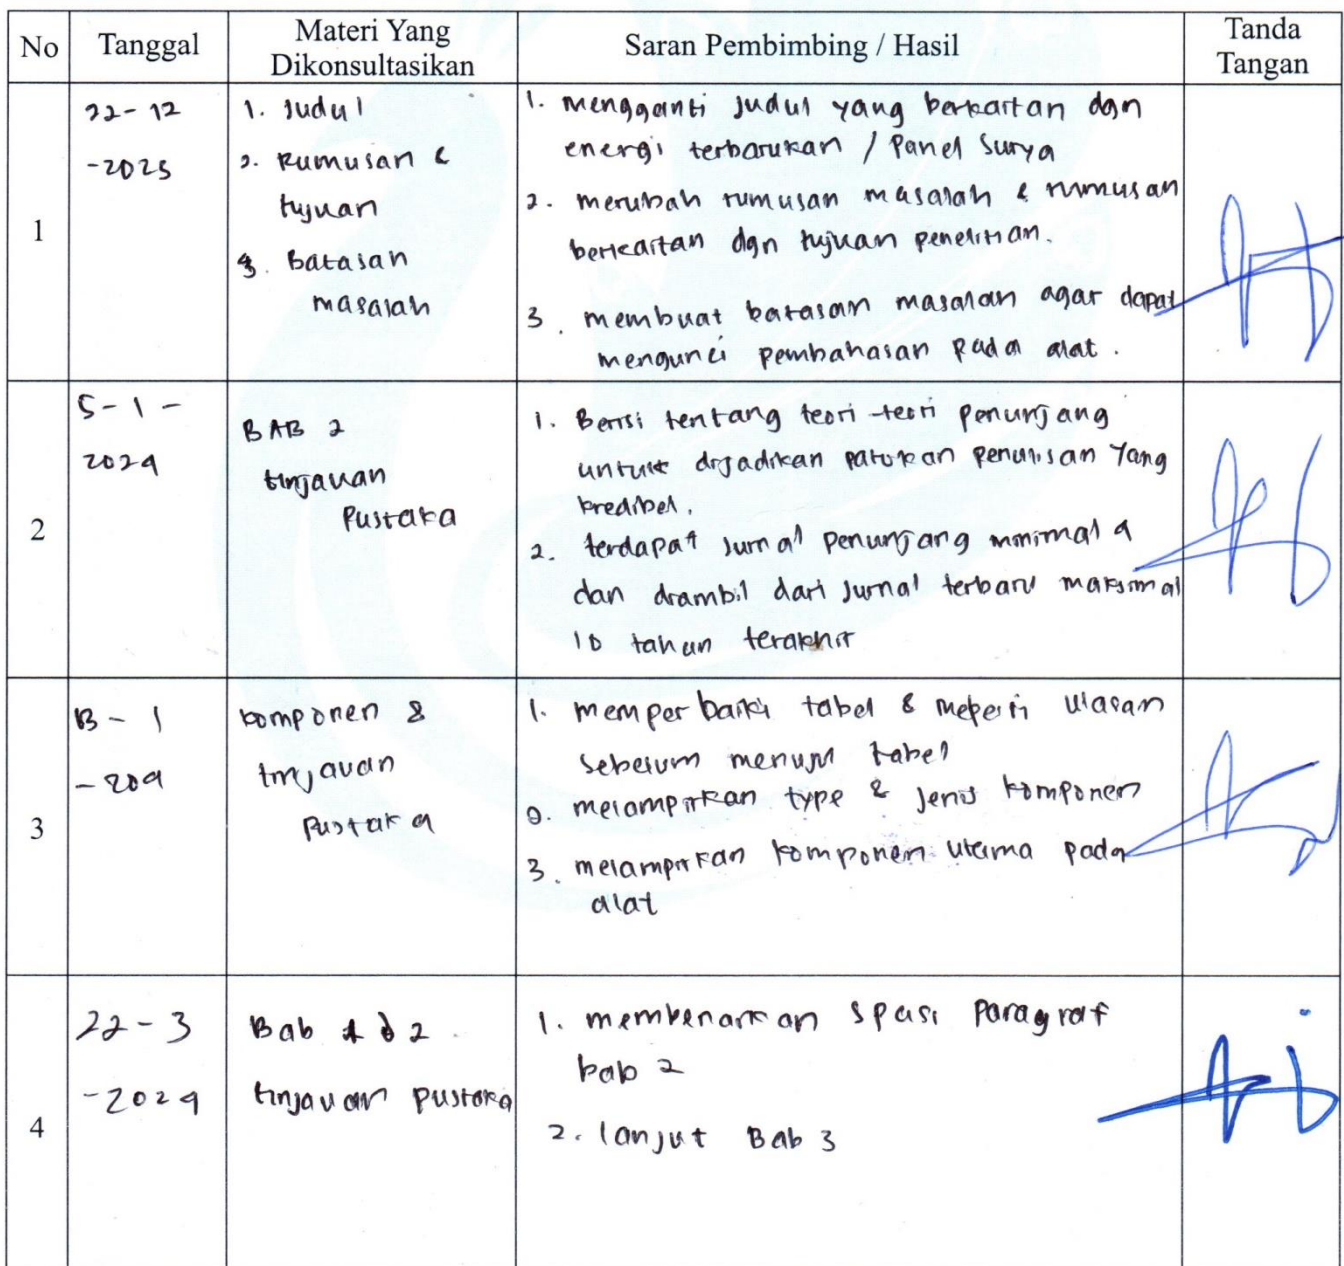 No Tanggal Materi Yang Dikonsultasikan Saran Pembimbing / Hasil Tanda Tangan
1
22-12
-2023
1. Judul
2. Rumusan &
tujuan
3. Batasan
masalah
1. mengganti judul yang berkaitan dgn
energi terbarukan / Panel Surya
2. merubah rumusan masalah & rumusan
berkaitan dgn tujuan penelitian.
3. membuat batasan masalah agar dapat
mengunci pembahasan pada alat.
2
5-1-
2024
BAB 2
tinjauan
Pustaka
1. Berisi tentang teori-teori penunjang
untuk dijadikan patokan penulisan Yang
kredibel.
2. terdapat Jurnal penunjang minimal 4
dan diambil dari Jurnal terbaru maksimal
10 tahun terakhir
3
13-1
komponen &
tinjauan
Pustaka
1. memperbaiki tabel & meberi ulasan
sebelum menuju tabel
2. melampirkan type & Jenis komponen
3. melampirkan komponen utama pada
alat
4
22-3
-2024
Bab 1 & 2
tinjauan pustaka
1. membenarkan spasi Paragraf
bab 2
2. lanjut Bab 3